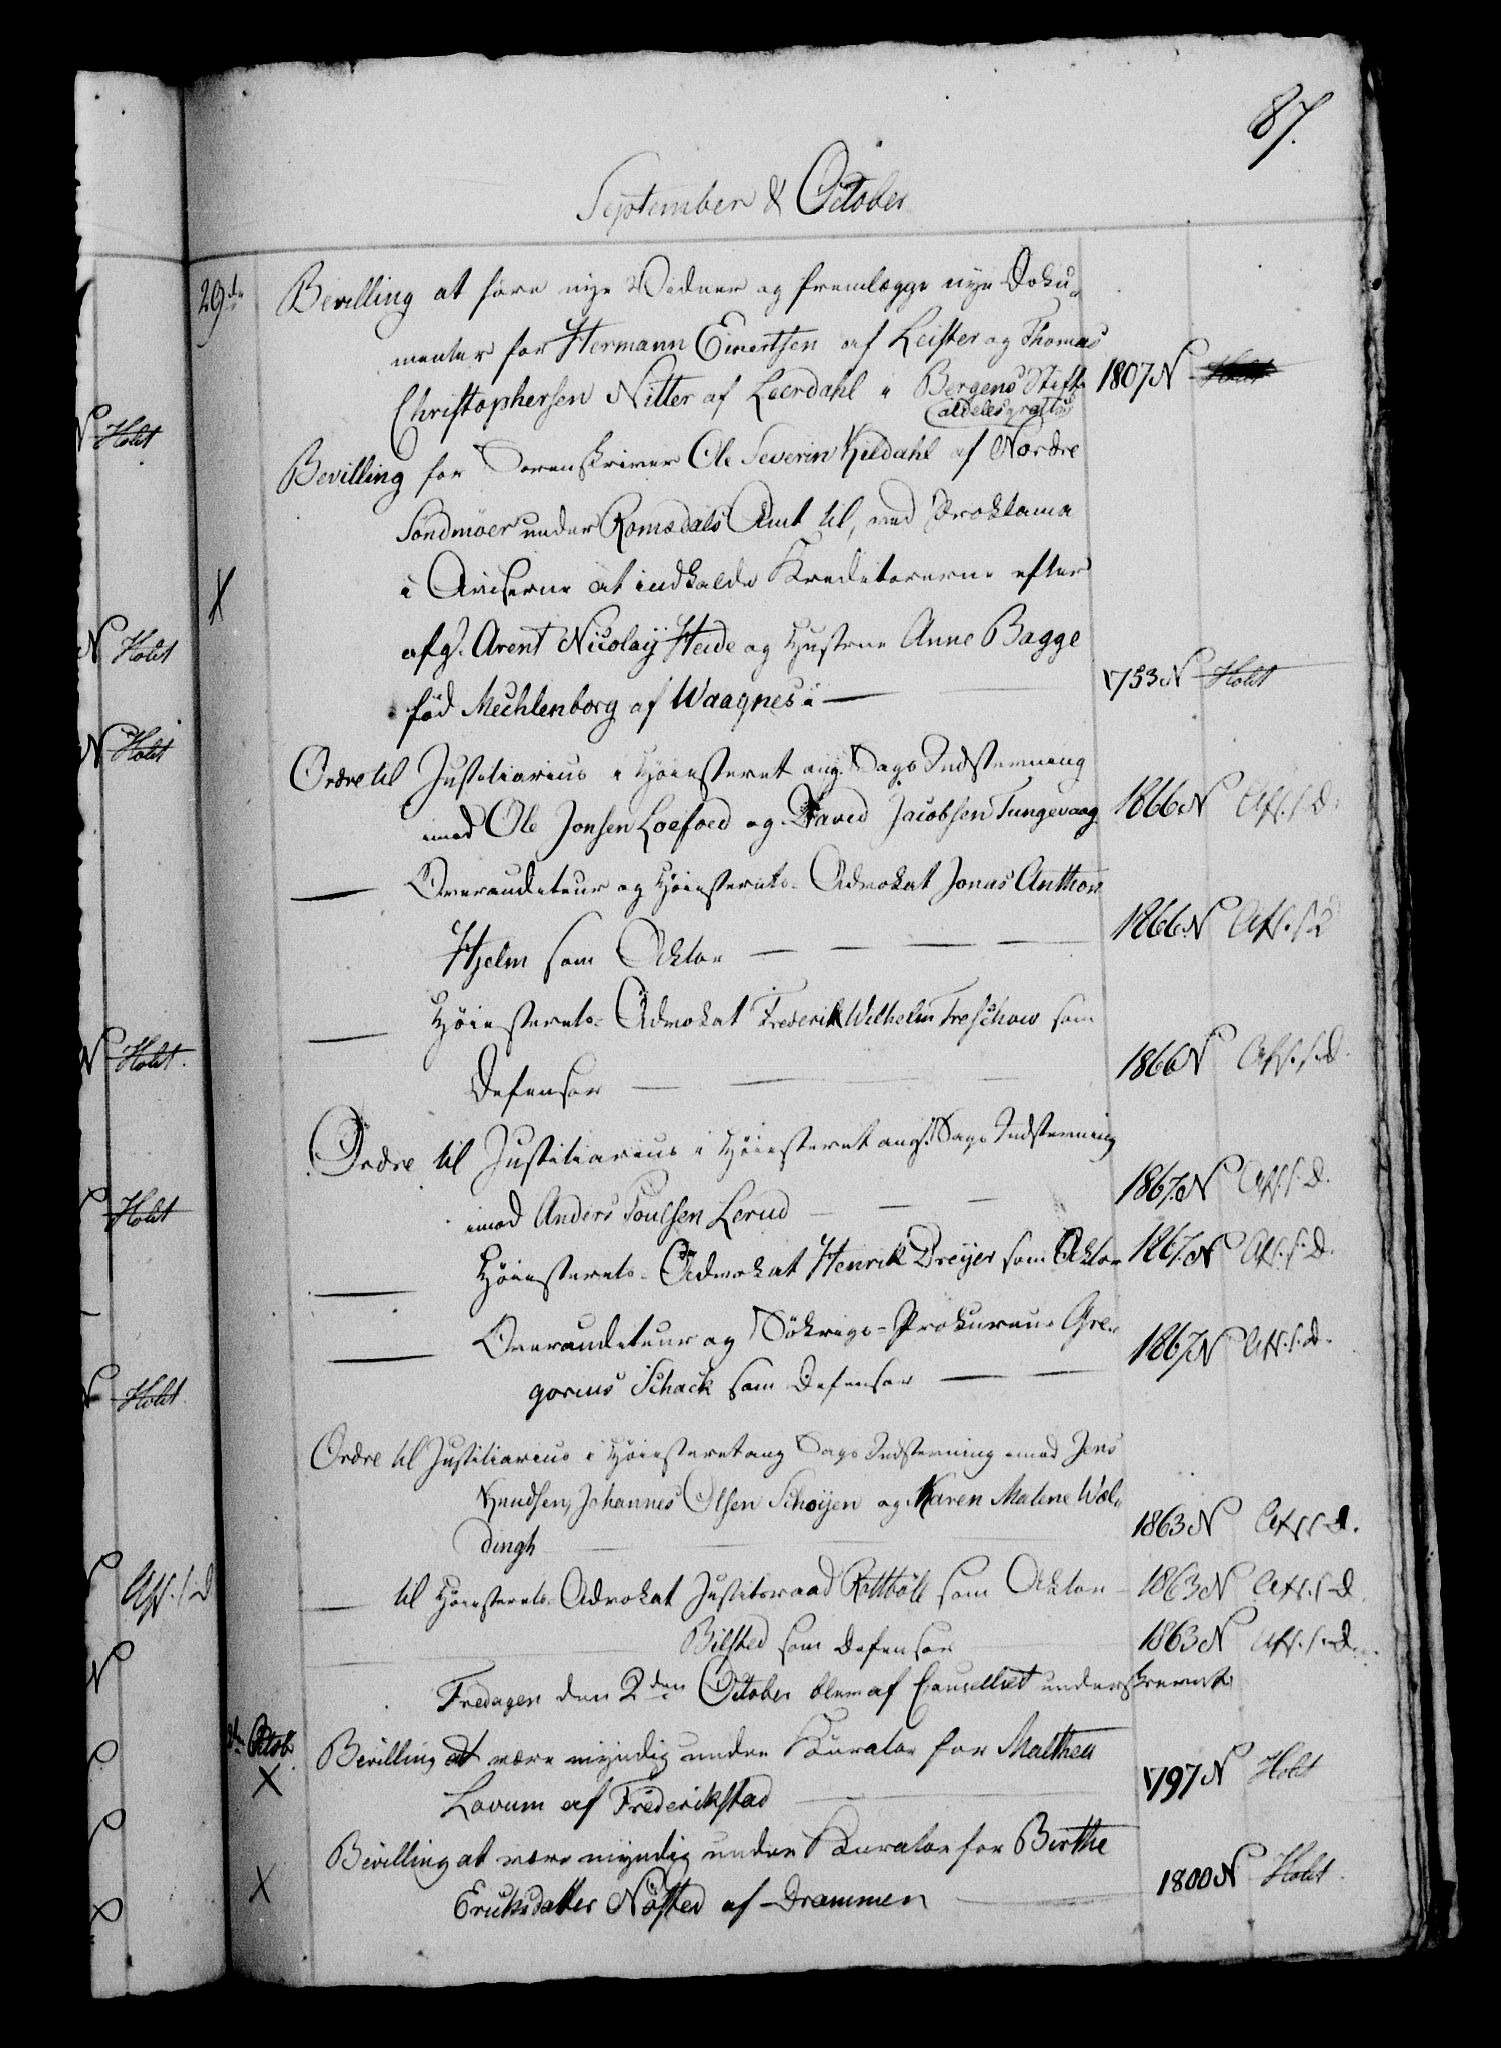 87.
September & October
29de Bevilling at føre nye Vidner og fremlægge nye Doku-
menter for Hermann Einertsen af Leister og Thomas
Christophersen Nitter af Leerdahl i Bergens Stift 1807 N Holst
(aldeles gratis)
Bevilling for Sorenskriver Ole Severin Kildahl af Nordre
Söndmöer under Romsdals Amt til, ved Proklama
X i Aviserne at indkalde Kreditorerne efter
afg. Arent Nicolaij Heide og Hustrue Anne Bagge
fød Mechlenborg af Waagnes 1753 N Holst
Ordre til Justitiarius i Høiesteret ang. Sags Indstevning
imod Ole Jonsen Loefoed og David Jacobsen Tungevaag 1866 N Aff. s. D.
Overauditeur og Høiesterets-Advokat Jonas Anthon
Hjelm som Aktor 1866 N Aff. s. D
Høiesterets-Advokat Frederik Wilhelm Treschow som
Defensor 1866 N Aff. s. D.
Ordre til Justitiarius i Høiesteret ang. Sags Indstevning
imod Anders Poulsen Lerud 1867. N Aff. s. D.
Høiesterets-Advokat Henrik Dreyer som Aktor 1867. N Aff. s. D.
Overauditeur og Prokureur Gre-
gorius Schack som Defensor 1867 N Aff. s. D.
Ordre til Justitiarius i Høiesteret ang Sags Indstevning imod Jens
Knudsen, Johannes Olsen Schøyen og Karen Malene Wol-
dingh 1863 N Aff s D.
til Høiesterets-Advokat Justitsraad Rottböll som Aktor 1863 N Aff. s. D.
Bilsted som Defensor 1863 N Aff. s. D.
Fredagen den 2den October blev af Cancelliet underskrevet
Octob. Bevilling at være myndig under Kurator for Mathea
X Lovum af Frederikstad 1797 N Holst
Bevilling at være myndig under Kurator for Birthe
X Ericksdatter Nøsted af Drammen 1800 N Holst.